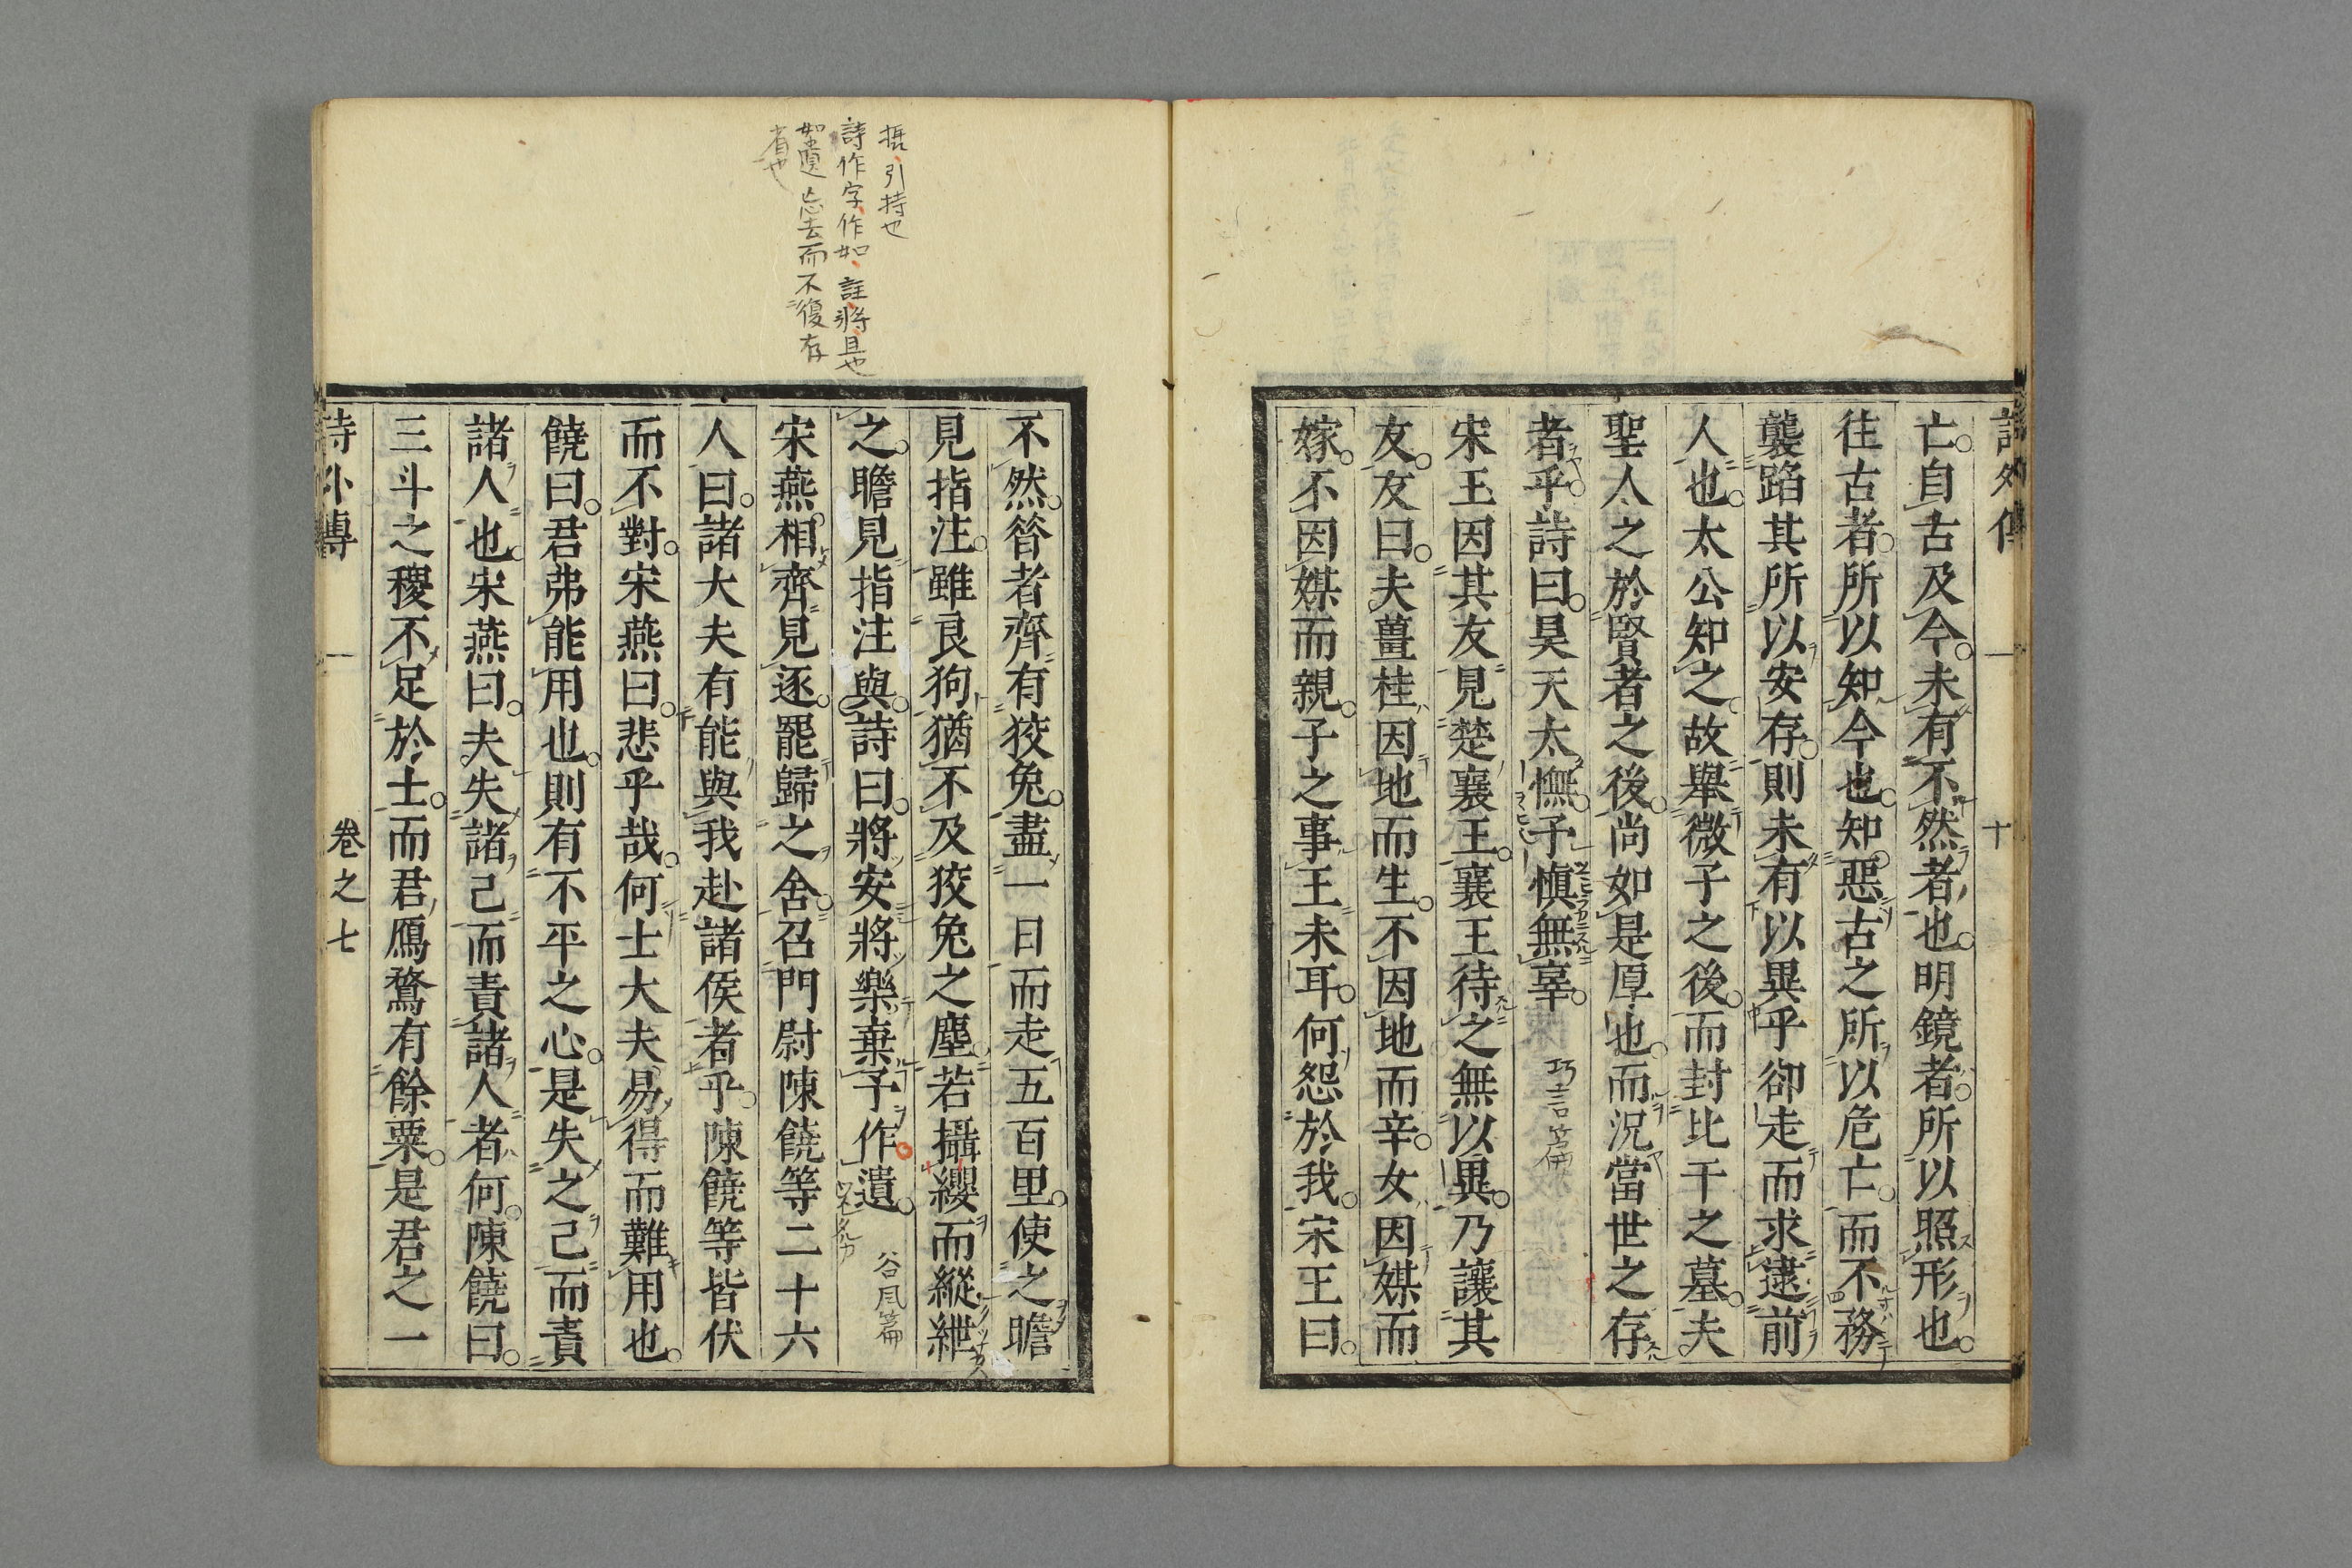 亡自古及今未有不然者也明鏡者所以照形也
往古者所以知今也知惡古之所以危亡而不務
襲蹈其所以安存則未有以異乎卻走而求逮前
人也太公知之故舉微子之後而封比干之墓夫
聖人之於賢者之後尚如是厚也而況當世之存
者乎詩曰昊天太憮予慎無辜 巧言篇
宋王因其友見楚襄王襄王待之無以異乃讓其
友友曰夫薑桂因地而生不因地而辛女因媒而
嫁不因媒而親子之事王未耳何怨於我宋王曰
不然答者齊有狡兔盡一日而走五百里使之瞻
見指注雖良狗猶不及狡兔之塵若攝纓而縱紲
之瞻見指注與詩曰將安將樂棄予作遺 谷風篇
宋燕相齊見逐罷歸之舍召門尉陳饒等二十六
人曰諸大夫有能與我赴諸侯者乎陳饒等皆伏
而不對宋燕曰悲乎哉何士大夫易得而難用也
饒曰君弗能用也則有不平之心是失之己而責
諸人也宋燕曰夫失諸己而責諸人者何陳饒曰
三斗之稷不足於士而君鴈鶩有餘粟是君之一
詩外傳 卷之七
引持也
詩作字作如註將且也
如遺忘去而不復存
省也